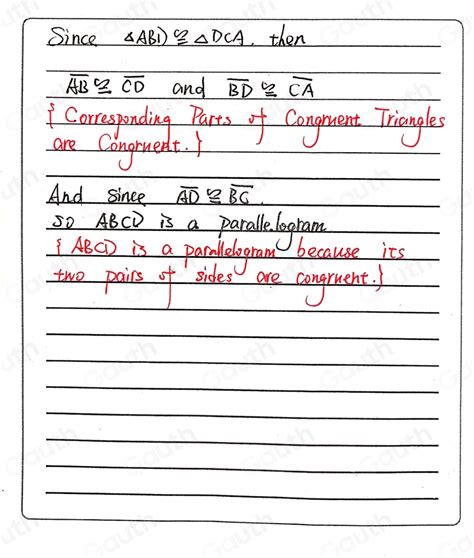 Since △ABD ≅ △DCA, then
AB ≅ CD and BD ≅ CA
{ Corresponding Parts of Congruent Triangles
are Congruent. }
And since AD ≅ BC,
so ABCD is a parallelogram
{ ABCD is a parallelogram because its
two pairs of sides are congruent. }
Gauth